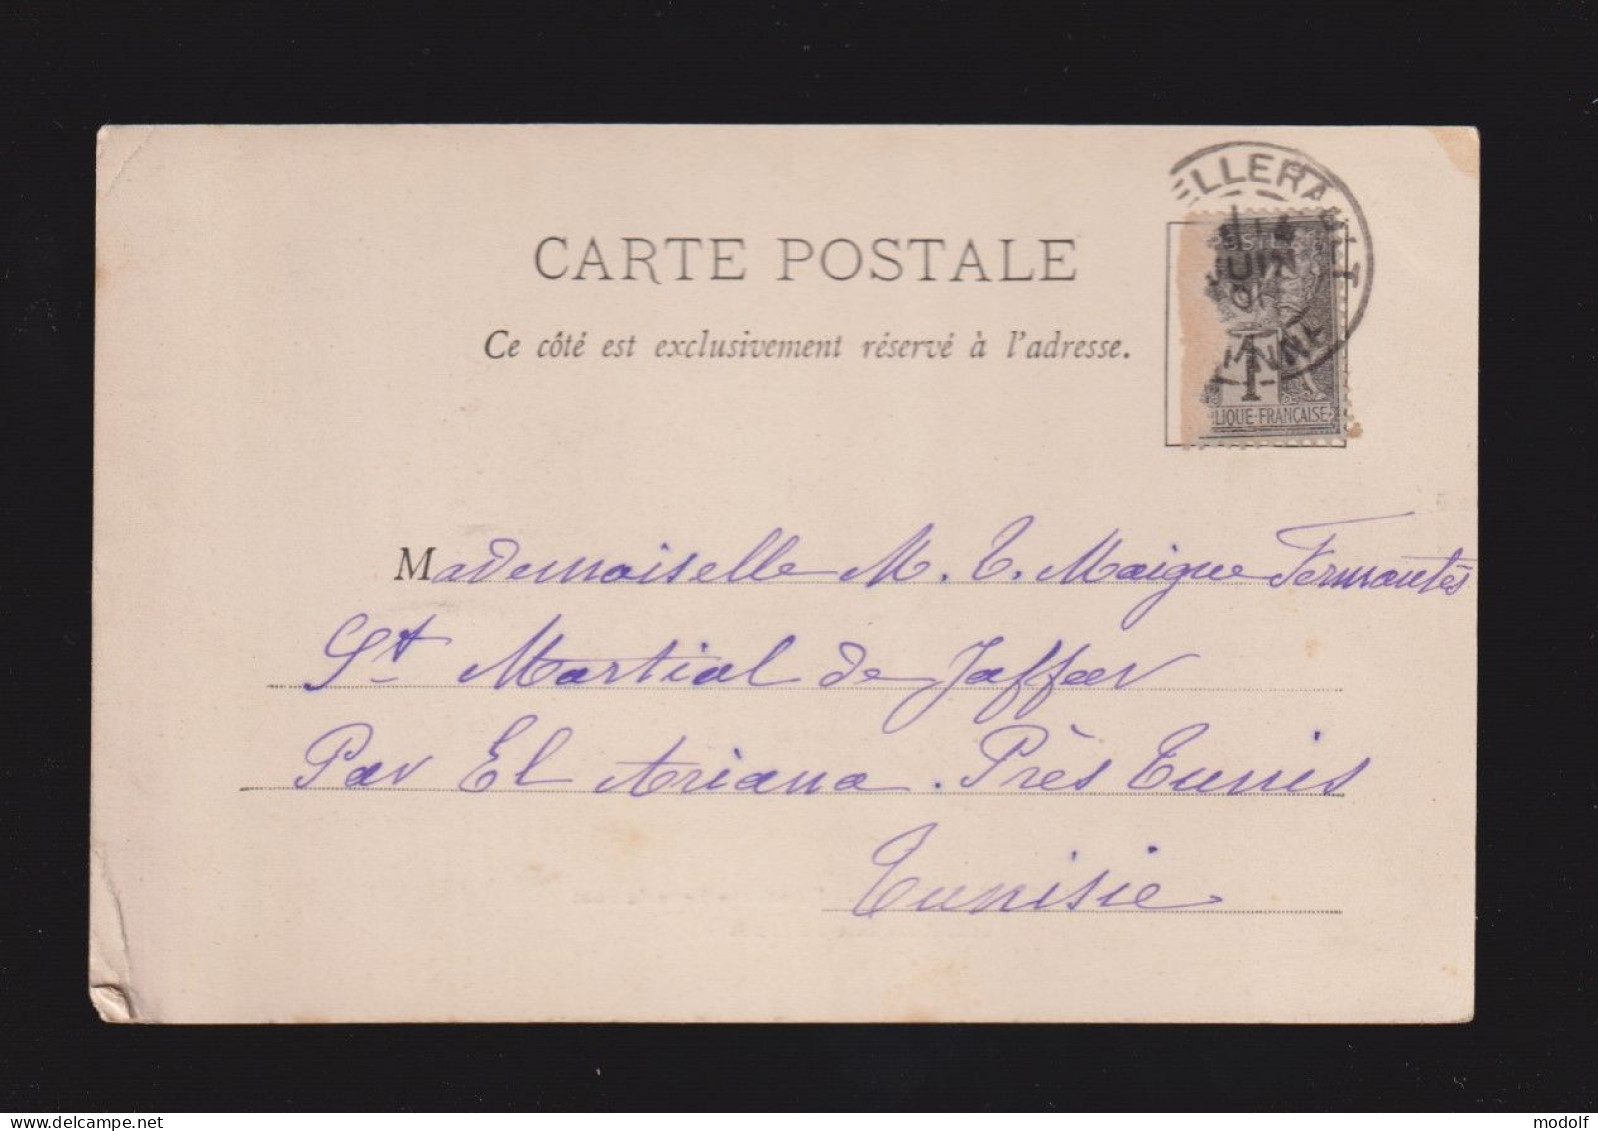 CARTE POSTALE
Ce côté est exclusivement réservé à l'adresse.
ELLERAULT
JUIN
LIQUE-FRANÇAISE
Mademoiselle M. T. Maigue Fermantès
St Martial de Jaffar
Par El Ariana. Près Tunis
Tunisie
delcampe.net
modolf